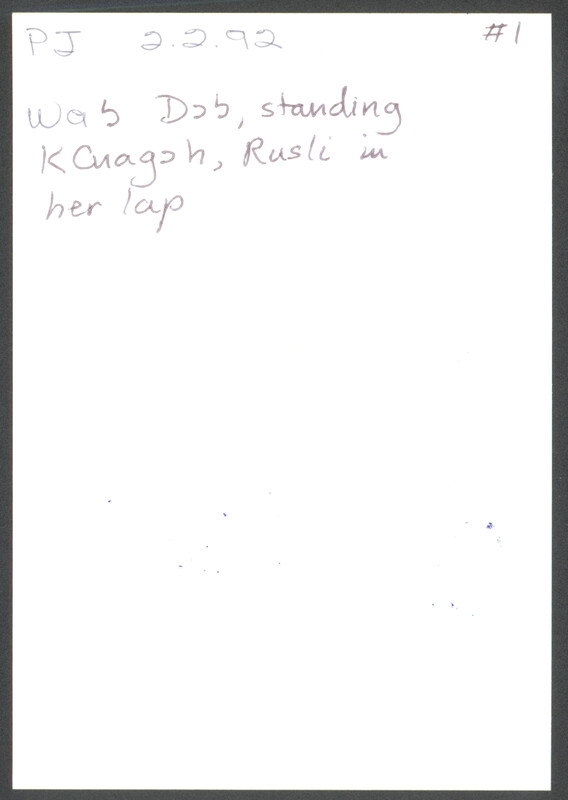 PJ 2.2.92 #1
Wa5 Dɔb, standing
KCnagɔh, Rusli in
her lap